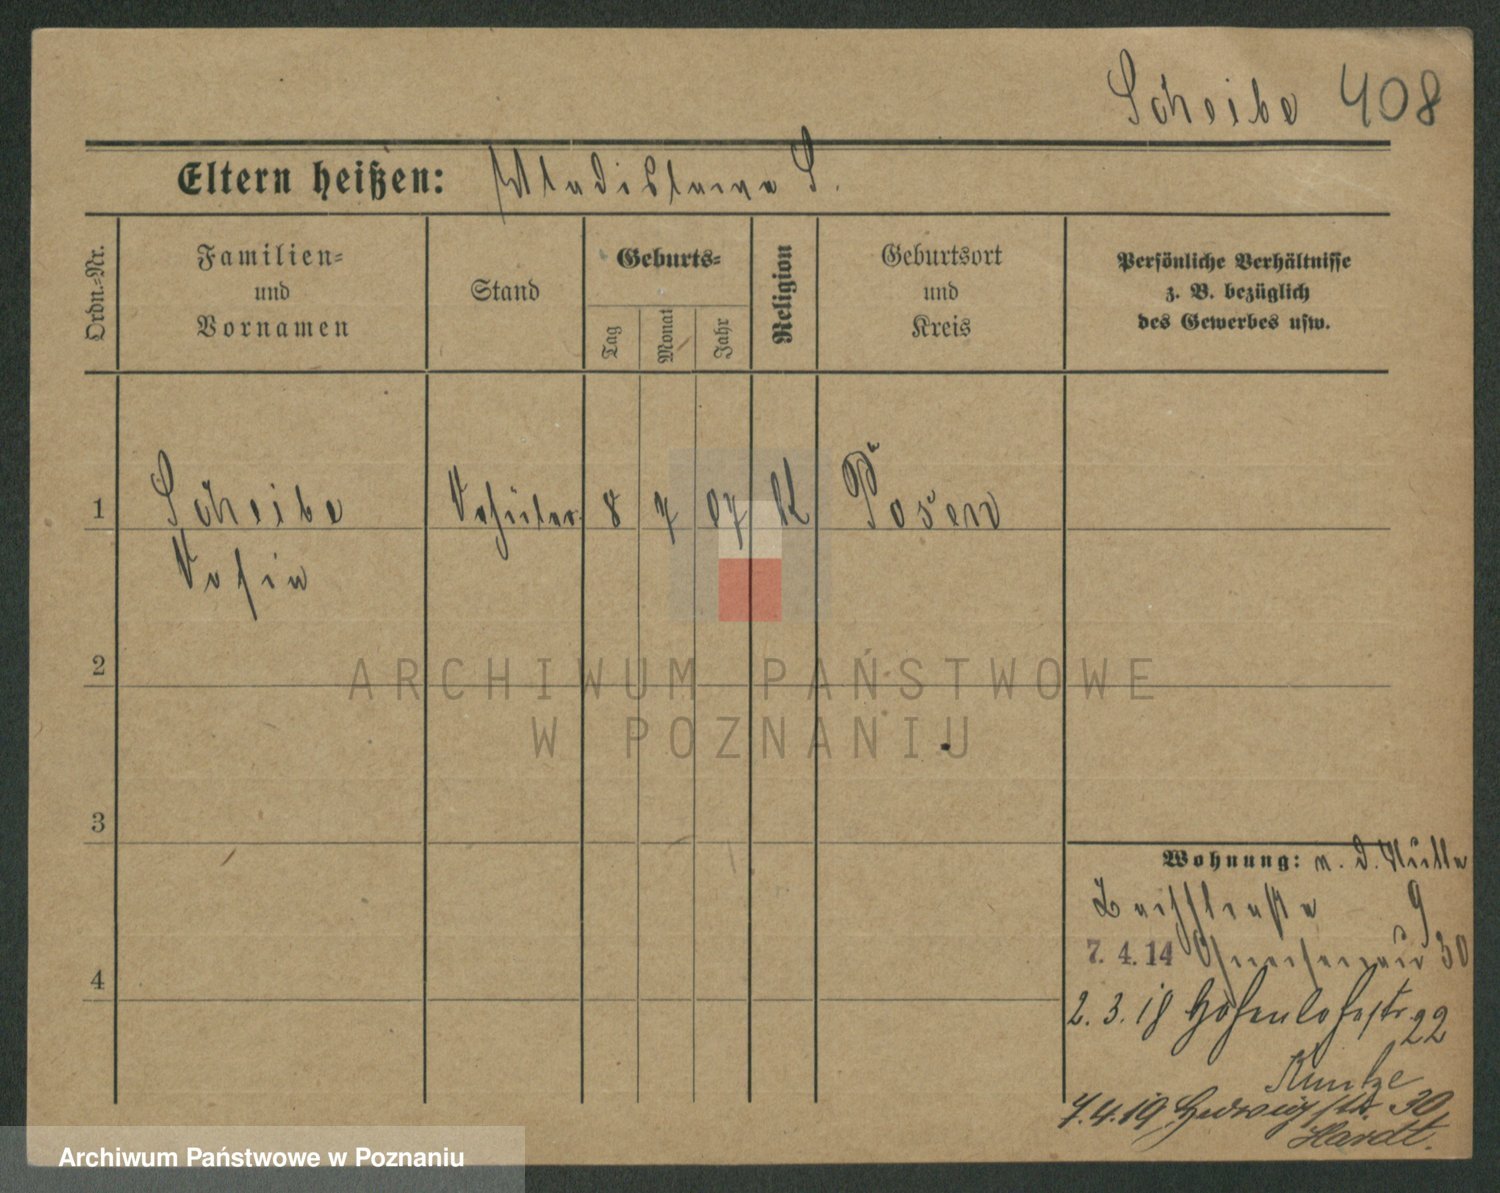 Scheibe 408
Eltern heißen: Wladislawa S.
Ordn.-Nr.
Familien-
und
Vornamen
Stand
Geburts-
Tag
Monat
Jahr
Religion
Geburtsort
und
Kreis
Persönliche Verhältnisse
z. B. bezüglich
des Gewerbes usw.
1 Scheibe Schüler 8 7 07 K Posen
Sofia
2
ARCHIWUM PAŃSTWOWE
W POZNANIU
3
Wohnung: n. d. Mutter
9
7. 4. 14 30
2. 3. 18 Hohenlohestr 22
Kuntze
7.4.19 Hedwigstr. 30
Hardt.
4
Archiwum Państwowe w Poznaniu